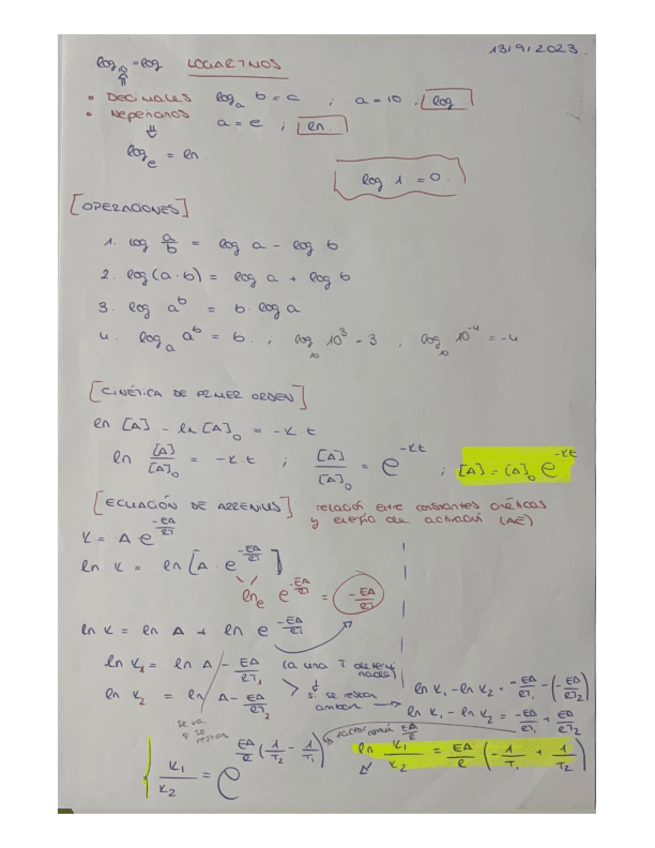 13/9/2023.
log₁₀ = log LOGARITMOS
• Decimales logₐ b = c ; a = 10 . log
• Neperianos a = e ; ln.
⇓
logₑ = ln.
log 1 = 0.
[OPERACIONES]
1. log a/b = log a - log b
2. log (a·b) = log a + log b
3. log aᵇ = b · log a
4. logₐ aᵇ = b. ; log₁₀ 10³ = 3 , log₁₀ 10⁻⁴ = -4
[CINÉTICA DE PRIMER ORDEN]
ln [A] - ln [A]₀ = -K·t
ln [A]/[A]₀ = -K·t ; [A]/[A]₀ = e^-Kt ; [A] = [A]₀ e^-Kt
[ECUACIÓN DE ARRENIUS] relación entre constantes cinéticas
y energía de activación (AE)
K = A e^-EA/RT
ln K = ln [A · e^-EA/RT]
lnₑ e^-EA/RT = -EA/RT
ln K = ln A + ln e^-EA/RT
ln K₁ = ln A - EA/RT₁ (a una T determinada)
ln K₂ = ln A - EA/RT₂ si se restan ambas
ln K₁ - ln K₂ = -EA/RT₁ - (-EA/RT₂)
ln K₁ - ln K₂ = -EA/RT₁ + EA/RT₂
se va
si se
restan
factor común EA/R
ln K₁/K₂ = EA/R (-1/T₁ + 1/T₂)
K₁/K₂ = e^EA/R (1/T₂ - 1/T₁)